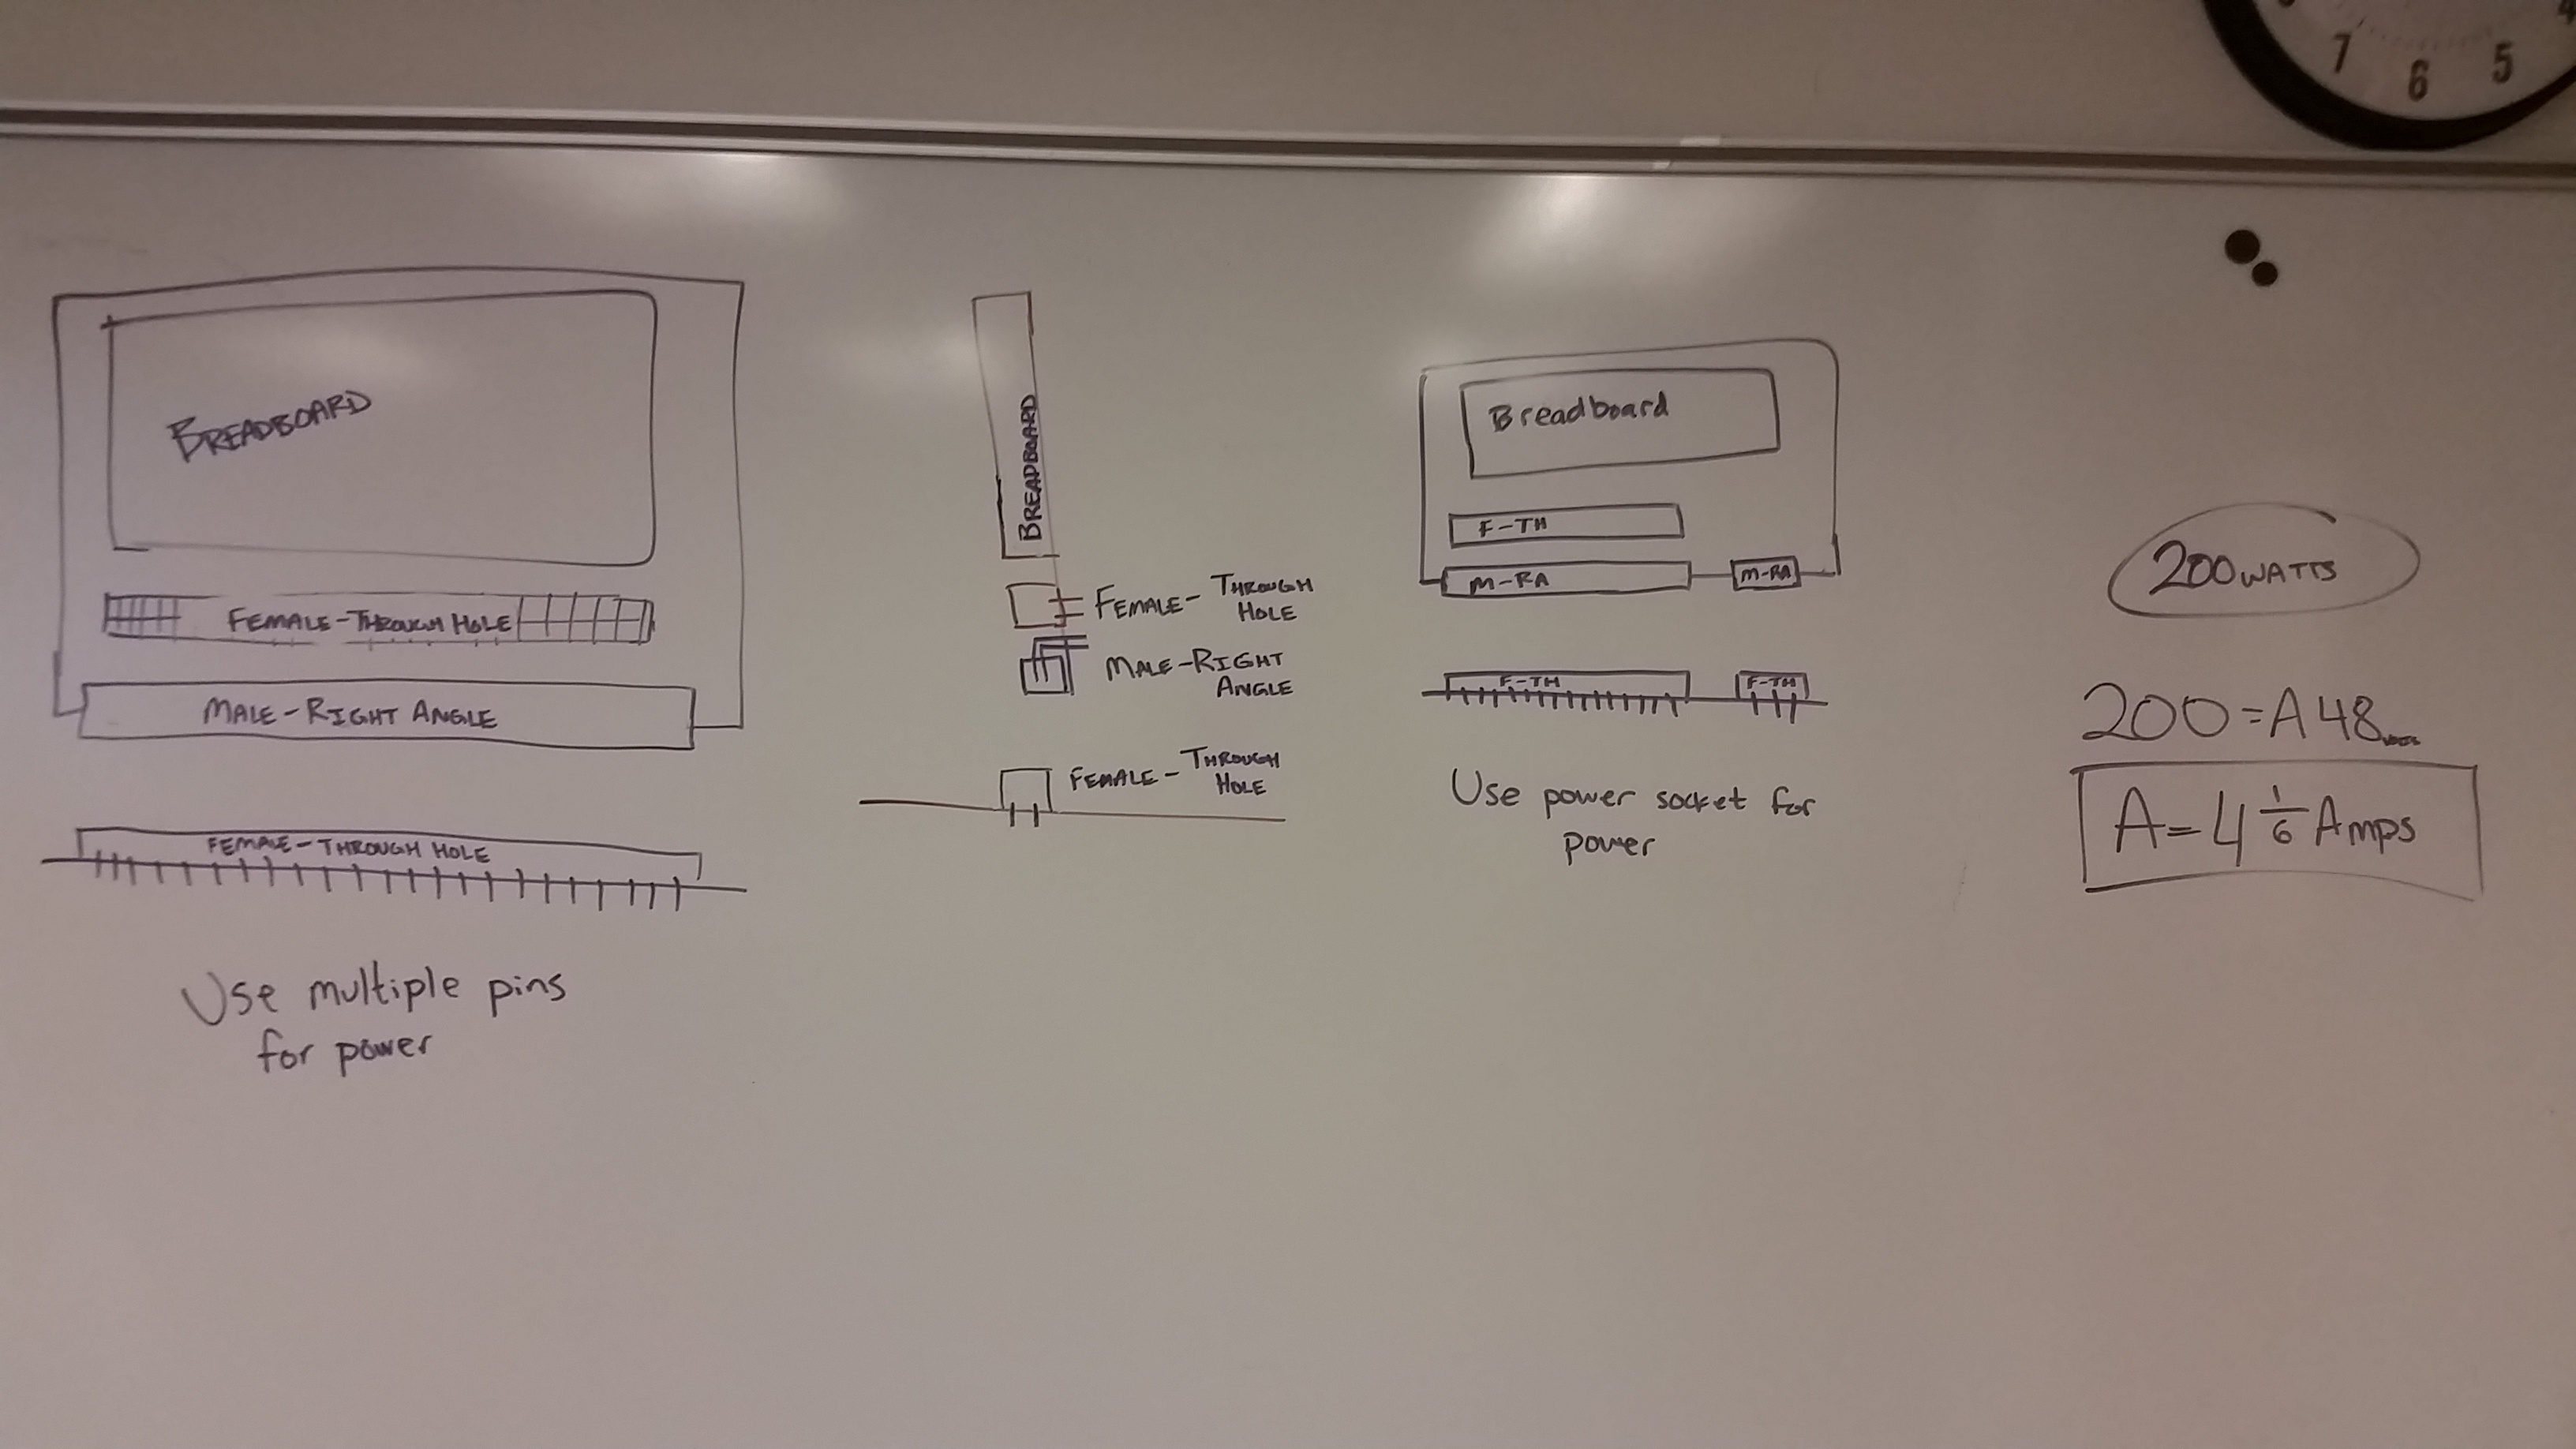 7
6
5
BREADBOARD
FEMALE-THROUGH HOLE
MALE-RIGHT ANGLE
FEMALE-THROUGH HOLE
Use multiple pins
for power
BREADBOARD
FEMALE-THROUGH
HOLE
MALE-RIGHT
ANGLE
FEMALE-THROUGH
HOLE
Breadboard
F-TH
M-RA
M-RA
F-TH
F-TH
Use power socket for
power
200 WATTS
200=A48
A=4 1/6 Amps